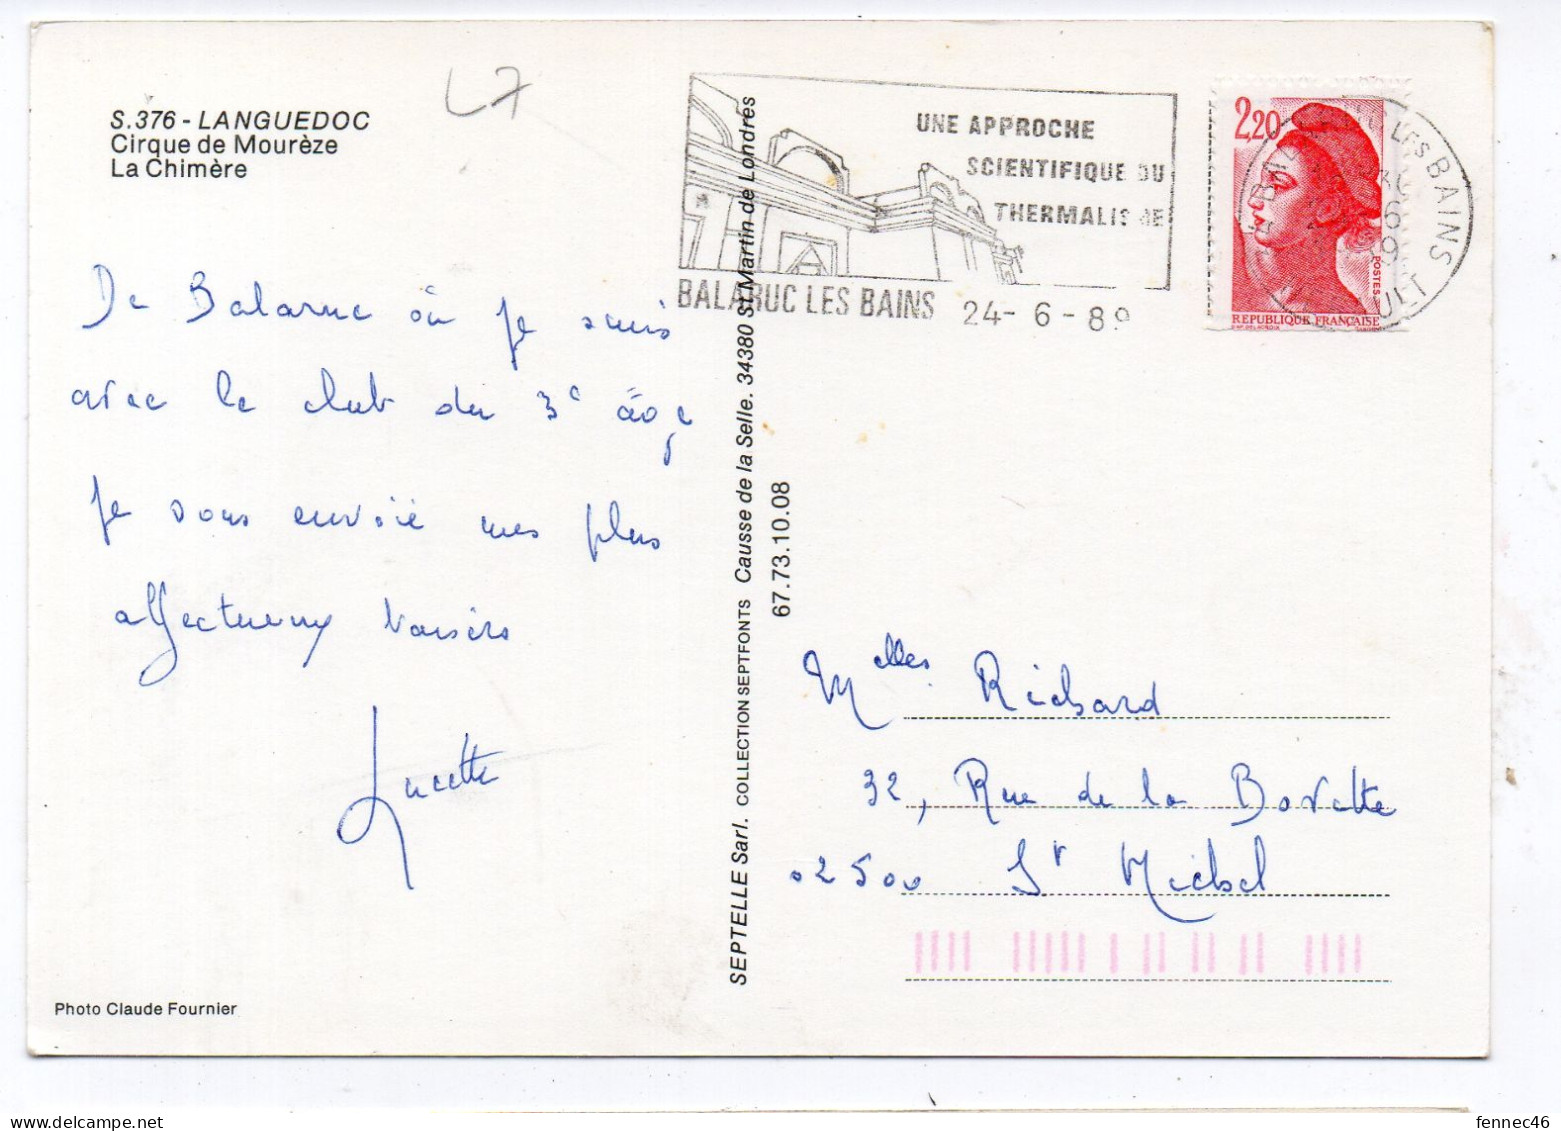 L7
S.376 - LANGUEDOC
Cirque de Mourèze
La Chimère
De Balaruc où je suis
avec le club du 3e âge
je vous envoie mes plus
affectueux baisers
Lucette
Photo Claude Fournier
SEPTELLE Sarl. COLLECTION SEPTFONTS Causse de la Selle. 34380 St Martin de Londres
67.73.10.08
UNE APPROCHE
SCIENTIFIQUE DU
THERMALISME
BALARUC LES BAINS 24-6-89
2,20
POSTES
REPUBLIQUE FRANÇAISE
LES BAINS
Melles Richard
32, Rue de la Bovette
02500 St Michel
fennec46